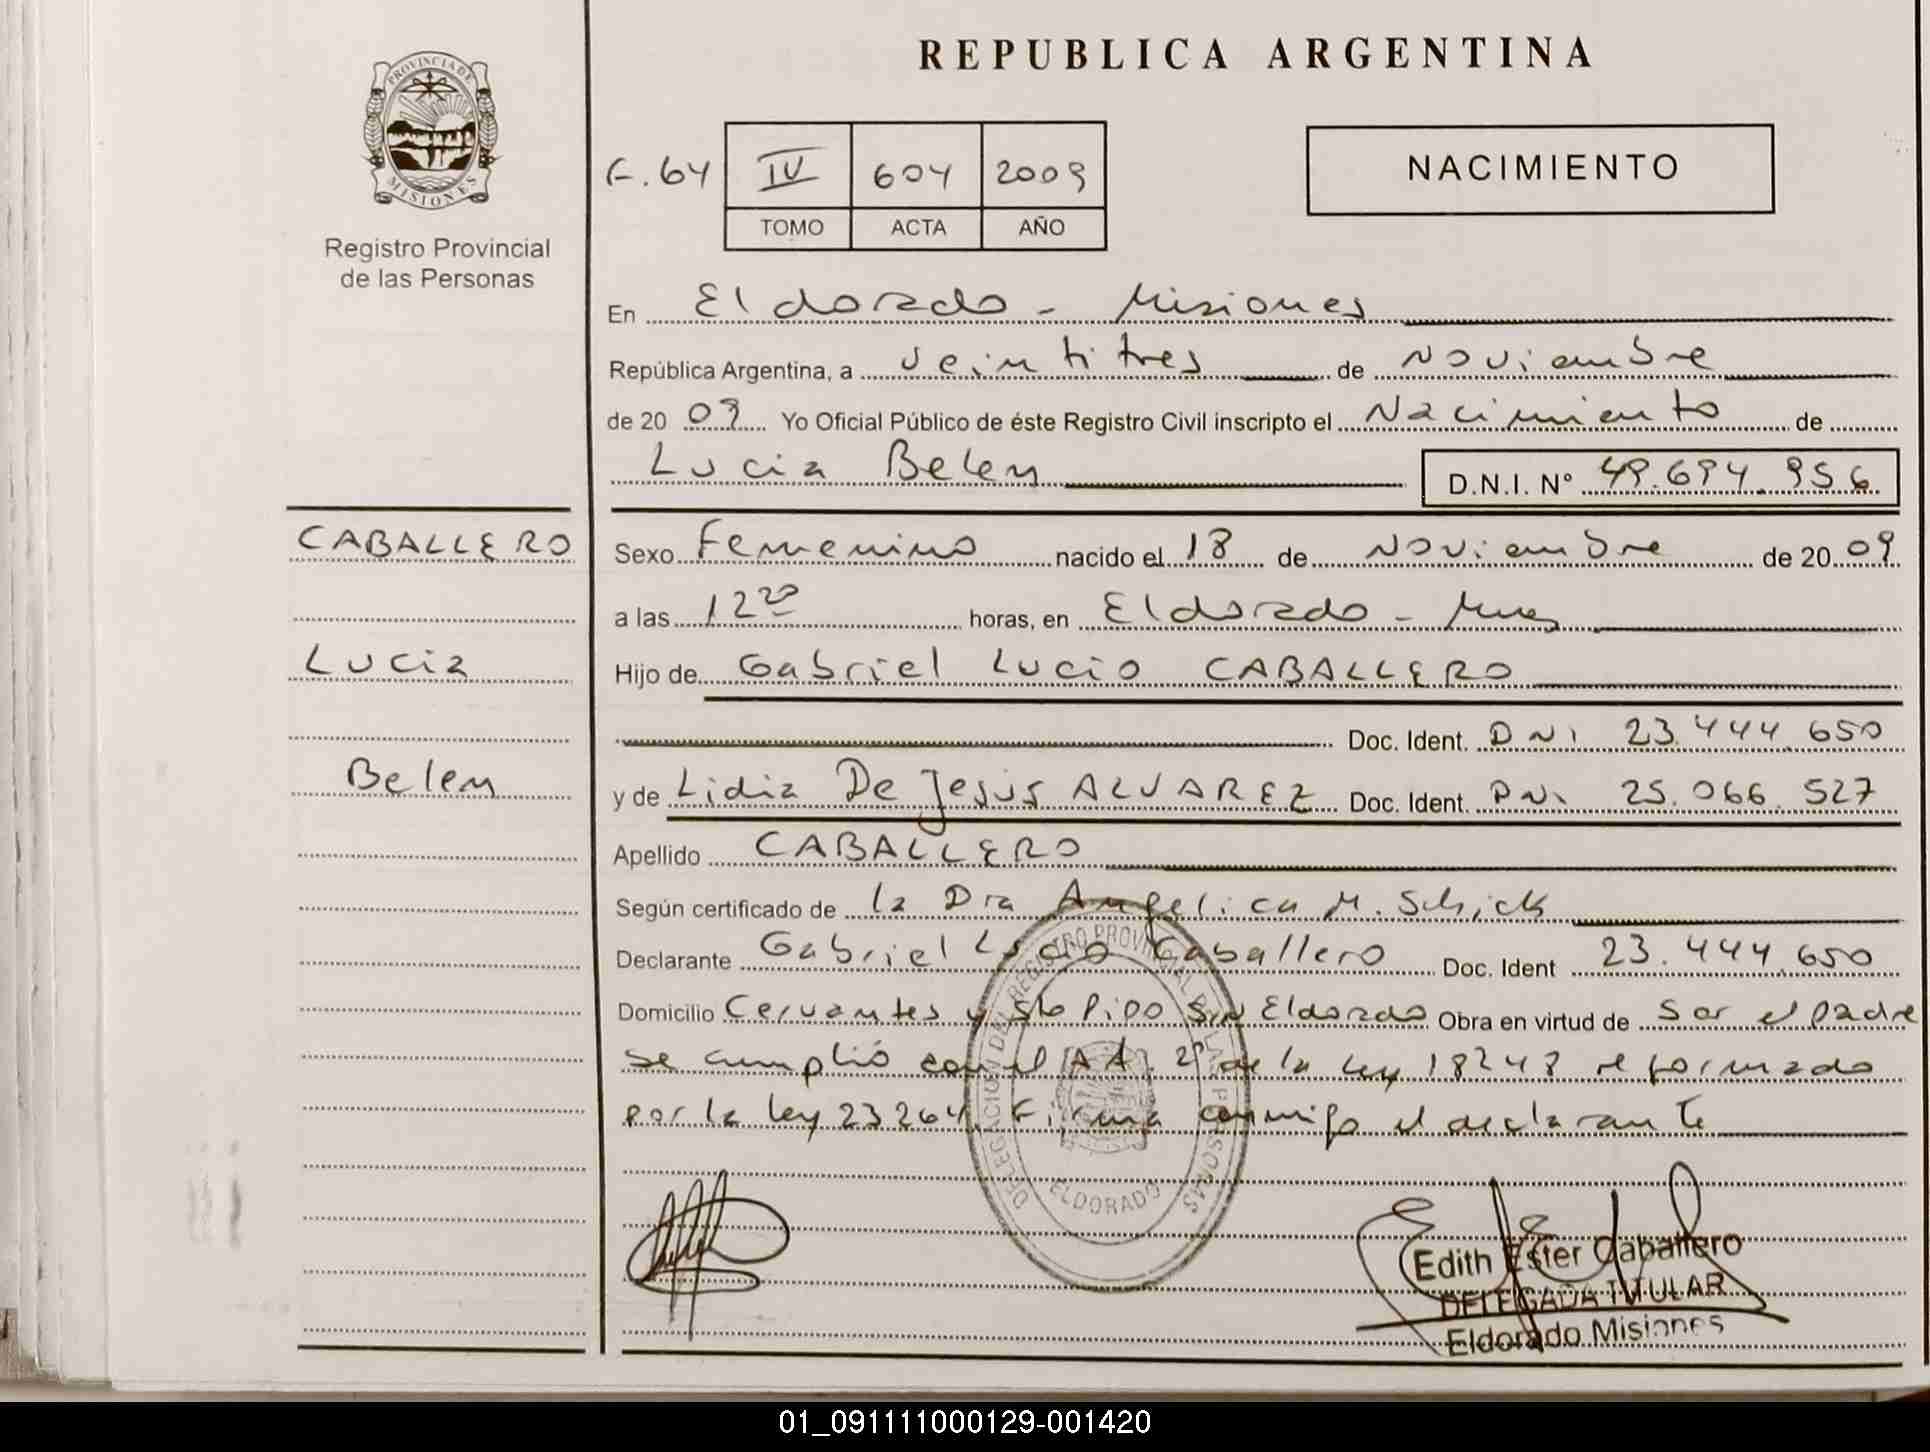 REPUBLICA ARGENTINA
PROVINCIA DE MISIONES
Registro Provincial
de las Personas
F. 64 IV 604 2009
TOMO ACTA AÑO
NACIMIENTO
En Eldorado - Misiones
República Argentina, a veintitres de Noviembre
de 20 09 Yo Oficial Público de éste Registro Civil inscripto el Nacimiento de
Lucia Belen D.N.I. N° 49.694.956
CABALLERO
Lucia
Belen
Sexo Femenino nacido el 18 de Noviembre de 20 09
a las 12 20 horas, en Eldorado - Mnes
Hijo de Gabriel Lucio CABALLERO
Doc. Ident. DNI 23.444.650
y de Lidia De Jesús ALVAREZ Doc. Ident. DNi 25.066.527
Apellido CABALLERO
Según certificado de la Dra Angelica M. Schick
Declarante Gabriel Lucio Caballero Doc. Ident 23.444.650
Domicilio Cervantes y Sto Pipo S/N Eldorado Obra en virtud de Ser el padre
se cumplió con el 2º de la Ley 18248 reformado
por la ley 23264. Firma conmigo el declarante
DELEGACION DEL REGISTRO PROVINCIAL DE LAS PERSONAS
ELDORADO
Edith Ester Caballero
DELEGADA TITULAR
Eldorado Misiones
01_091111000129-001420